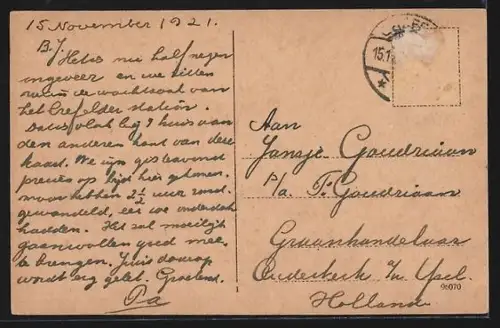 15 November 1921.
B. J.
Het is nu half negen
ongeveer en we zitten
de wachtzaal van
het Crefelder station.
Dat is vlak bij 't huis van
den anderen kant van deze
kaart. We zijn gisteravond
precies op tijd hier gekomen.
maar hebben 2 1/2 uur rond-
gewandeld, eer we onderdak
hadden. Het zal moeilijk
gaan wollen goed mee
te brengen. Juist daarop
wordt erg gelet. Groetend.
Pa
15.1
Aan
Jansje Goudriaan
p/a. T. Goudriaan
Graanhandelaar
Ouderkerk a/n IJsel.
Holland
96070